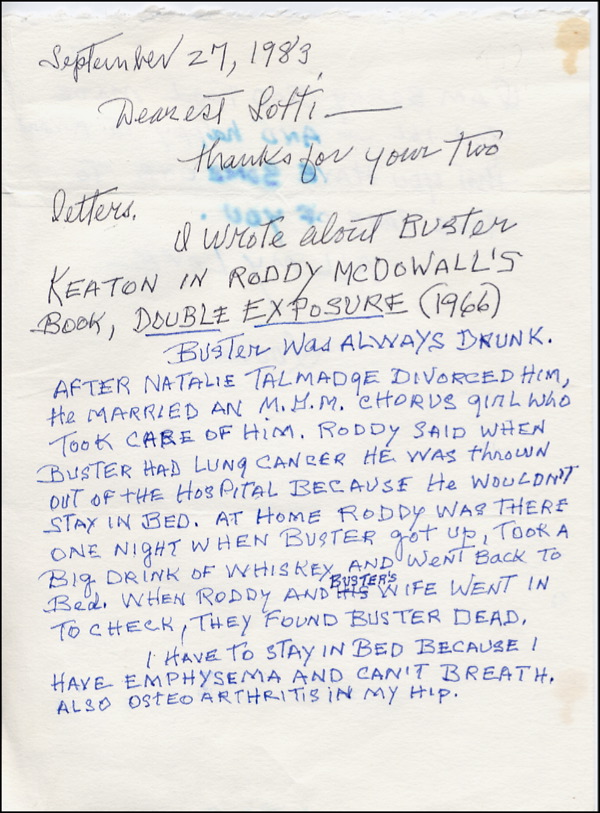 September 27, 1983
Dearest Lotti —
thanks for your two
letters.
I wrote about Buster
KEATON IN RODDY MCDOWALL'S
BOOK, DOUBLE EXPOSURE (1966)
BUSTER WAS ALWAYS DRUNK.
AFTER NATALIE TALMADGE DIVORCED HIM,
He MARRIED AN M.G.M. CHORUS GIRL WHO
TOOK CARE OF HIM. RODDY SAID WHEN
BUSTER HAD LUNG CANCER HE WAS THROWN
OUT OF THE HOSPITAL BECAUSE He WOULDN'T
STAY IN BED. AT HOME RODDY WAS THERE
ONE NIGHT WHEN BUSTER got UP, TOOK A
BIG DRINK OF WHISKEY AND WENT BACK TO
Bed. WHEN RODDY AND BUSTER'S WIFE WENT IN
TO CHECK, THEY FOUND BUSTER DEAD.
I HAVE TO STAY IN BED BECAUSE I
HAVE EMPHYSEMA AND CAN'T BREATH.
ALSO OSTEOARTHRITIS IN MY HIP.